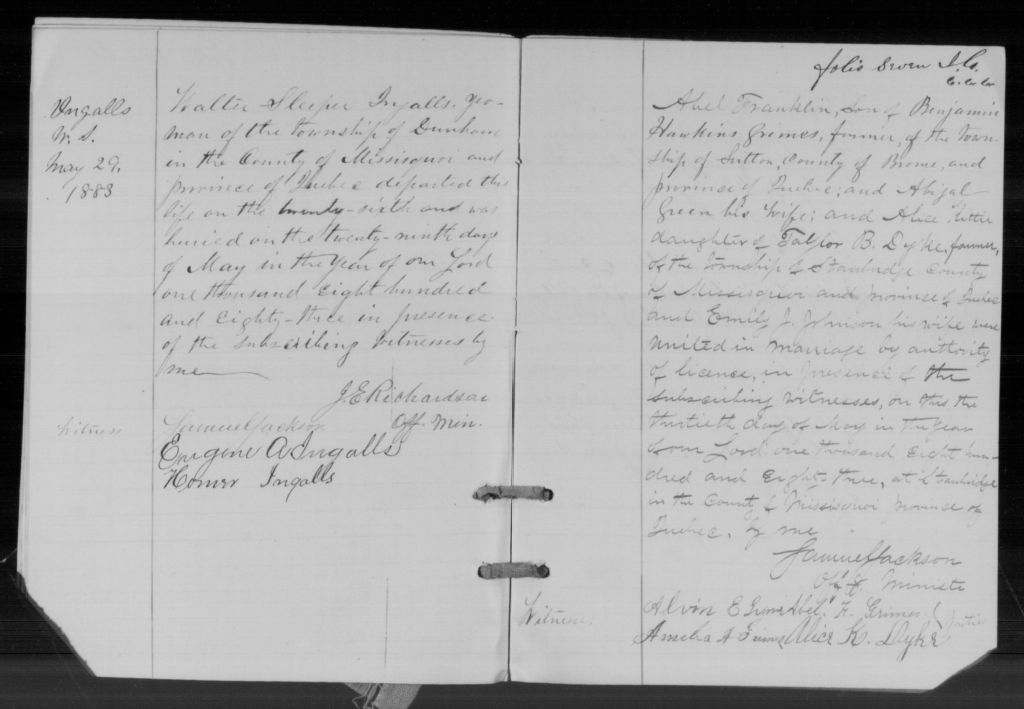 Ingalls
W. S.
May 29,
1883
Walter Sleeper Ingalls. Yeo-
man of the township of Dunham
in the County of Missisquoi and
province of Quebec departed this
life on the twenty-sixth and was
buried on the twenty-ninth day
of May in the Year of our Lord
one thousand eight hundred
and eighty-three in presence
of the subscribing witnesses by
me
J. E. Richardson
Off. Min.
Witness
Samuel Jackson
Eugene A. Ingalls
Homer Ingalls
folio seven
Abel Franklin, Son of Benjamin
Hawkins Grimes, farmer, of the town-
ship of Sutton, County of Brome, and
province of Quebec; and Abigal
Green his wife; and Alice Kittie
daughter of Taylor B. Dyke, farmer,
of the township of Stanbridge County
of Missisquoi and province of Quebec
and Emily J. Johnson his wife were
united in marriage by authority
of licence, in presence of the
subscribing witnesses, on this the
thirtieth day of May in the year
of our Lord one thousand eight hun-
dred and eighty-three, at Stanbridge
in the County of Missisquoi province of
Quebec, by me
Samuel Jackson
Off. Ministe
Witness
Alvin E Grimes Abel. F. Grimes
Amelia A Grimes Alice K. Dyke
Parties